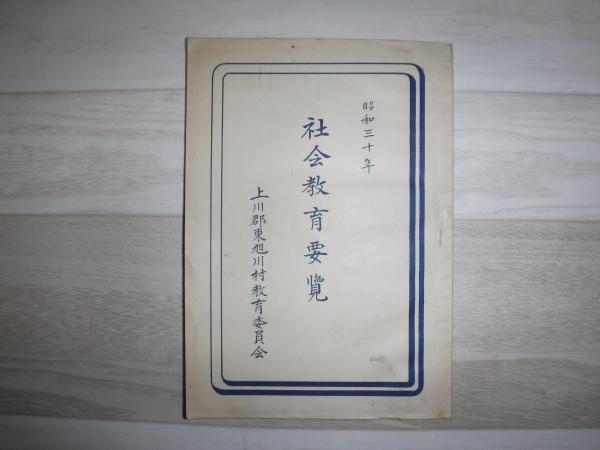 昭和三十年
社会教育要覧
上川郡東旭川村教育委員会